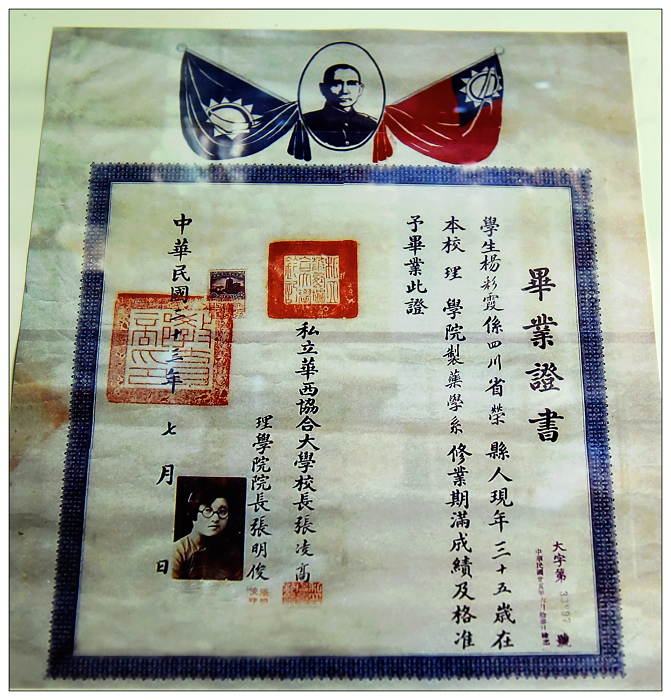 畢業證書
學生楊彩霞係四川省榮縣人現年三十五歲在
本校理學院製藥學系修業期滿成績及格准
予畢業此證
私立華西協合大學校長張凌高
理學院院長張明俊
中華民國二十三年七月日
大字第號
中華民國廿五年六月